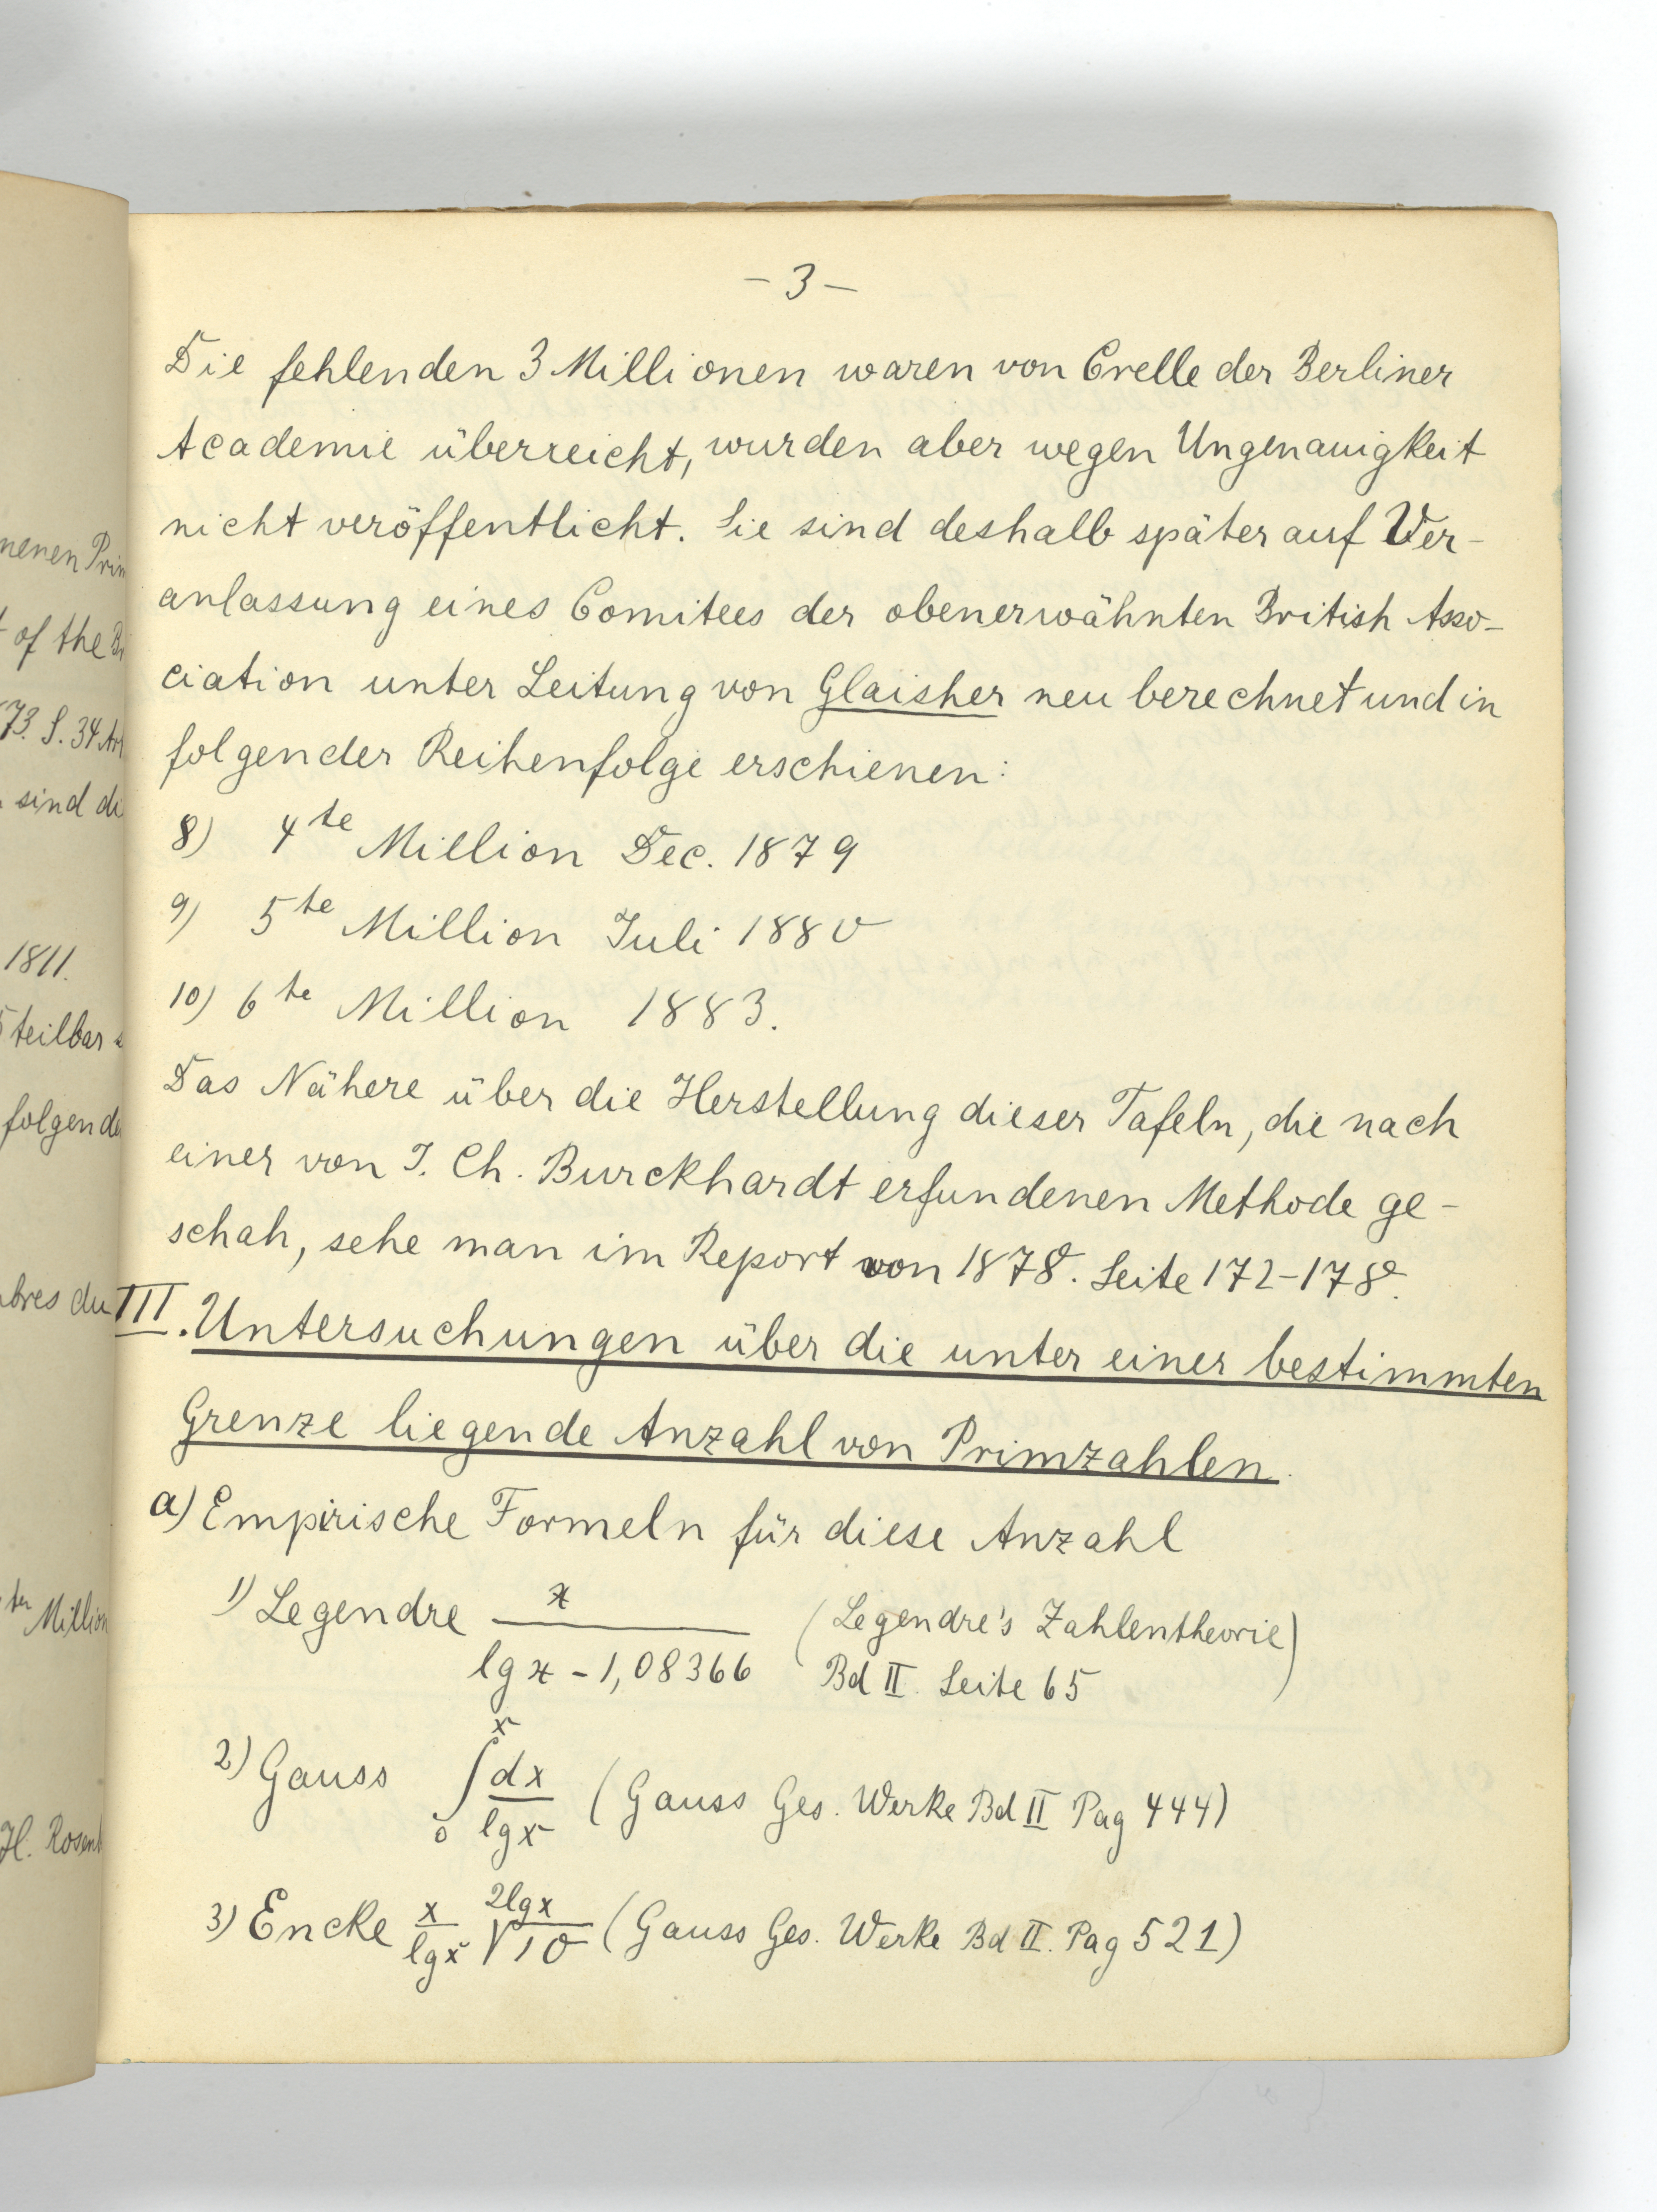 - 3 -
Die fehlenden 3 Millionen waren von Crelle der Berliner
Academie überreicht, wurden aber wegen Ungenauigkeit
nicht veröffentlicht. Sie sind deshalb später auf Ver-
anlassung eines Comitees der obenerwähnten British Asso-
ciation unter Leitung von Glaisher neu berechnet und in
folgender Reihenfolge erschienen:
8) 4te Million Dec. 1879
9) 5te Million Juli 1880
10) 6te Million 1883.
Das Nähere über die Herstellung dieser Tafeln, die nach
einer von J. Ch. Burckhardt erfundenen Methode ge-
schah, sehe man im Report von 1878. Seite 172-178.
III. Untersuchungen über die unter einer bestimmten
Grenze liegende Anzahl von Primzahlen.
a) Empirische Formeln für diese Anzahl
1) Legendre x / (lg x - 1,08366) (Legendre's Zahlentheorie
Bd II. Seite 65)
2) Gauss ∫₀ˣ dx / lg x (Gauss Ges. Werke Bd II Pag 444)
3) Encke x / lg x 2lgx√10 (Gauss Ges. Werke Bd II. Pag 521)
nenen Prim
of the B
73. S. 34 Art
sind di
1811.
5 teilbar
folgende
bres du
ter Million
H. Rosenb